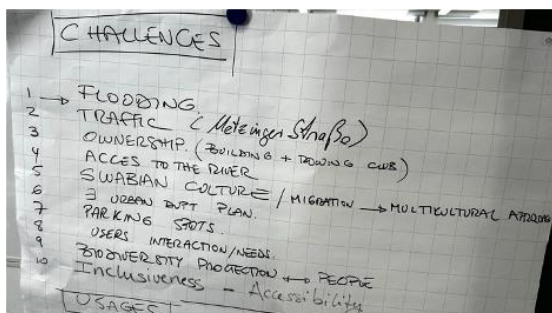 CHALLENCES
1 → FLOODING.
2 TRAFFIC (Metzinger Straße)
3 OWNERSHIP. (BUILDING + ROWING CLUB)
4 ACCES TO THE RIVER
5 SWABIAN CULTURE / MIGRATION → MULTICULTURAL
6 ∃ URBAN PLAN.
7 PARKING SPOTS.
8 USERS INTERACTION/NEEDS.
9 BIODIVERSITY PROTECTION ↔ PEOPLE
10 Inclusiveness - Accessibility
USAGES